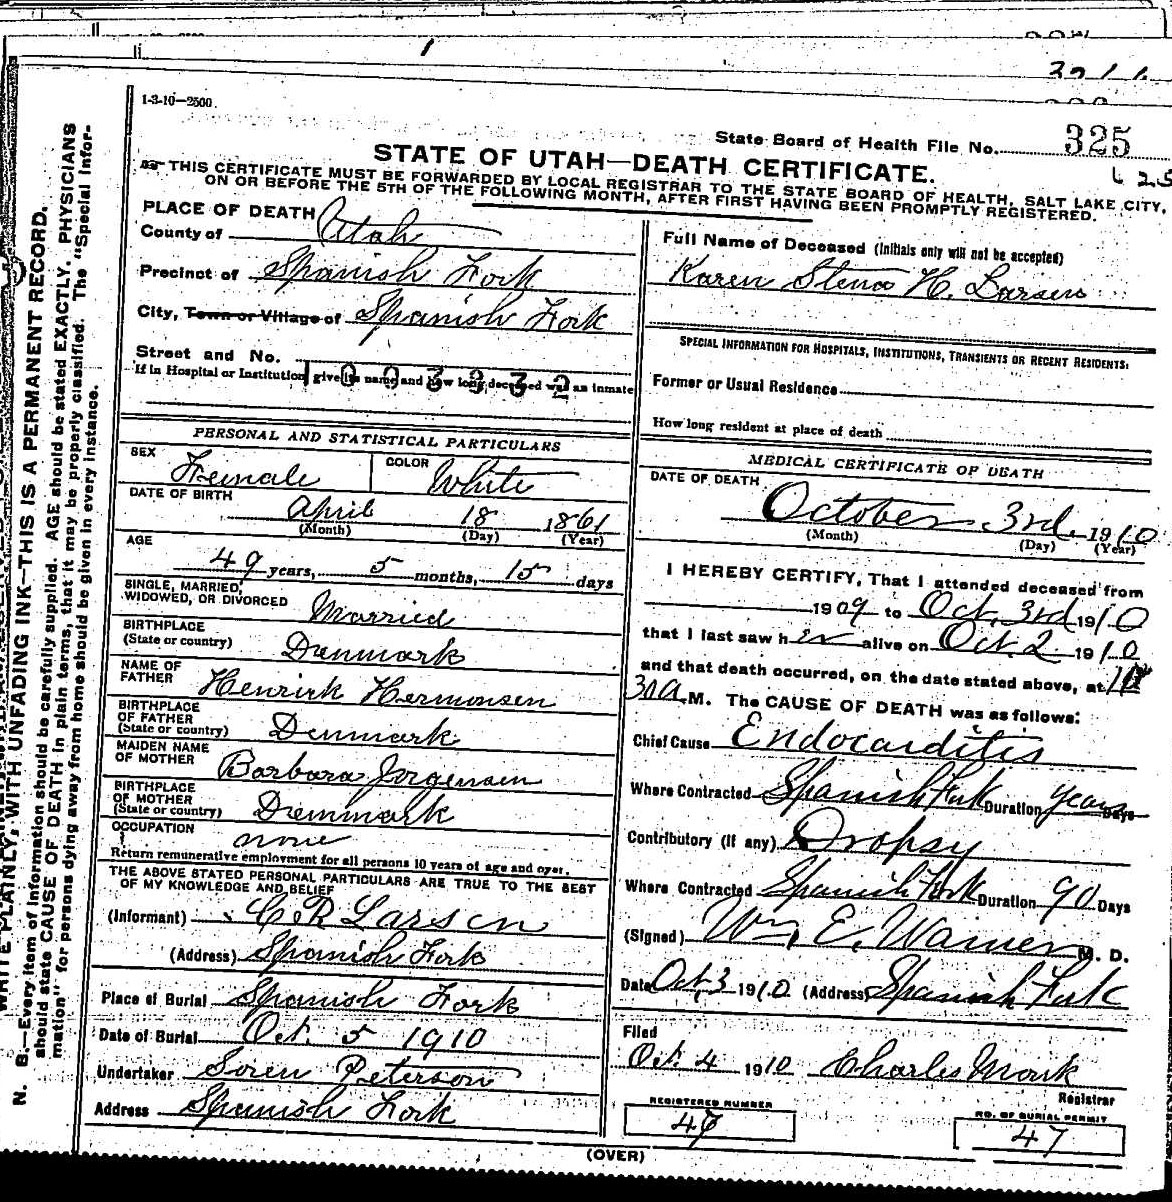 1-3-10—2500.
State Board of Health File No. 325
STATE OF UTAH—DEATH CERTIFICATE.
THIS CERTIFICATE MUST BE FORWARDED BY LOCAL REGISTRAR TO THE STATE BOARD OF HEALTH, SALT LAKE CITY,
ON OR BEFORE THE 5TH OF THE FOLLOWING MONTH, AFTER FIRST HAVING BEEN PROMPTLY REGISTERED.
PLACE OF DEATH
County of Utah
Precinct of Spanish Fork
City, Town or Village of Spanish Fork
Street and No.
If in Hospital or Institution give its name and how long deceased was an inmate
PERSONAL AND STATISTICAL PARTICULARS
SEX Female COLOR White
DATE OF BIRTH
April 18 1861
(Month) (Day) (Year)
AGE
49 years, 5 months, 15 days
SINGLE, MARRIED,
WIDOWED, OR DIVORCED Married
BIRTHPLACE
(State or country) Danmark
NAME OF
FATHER Henrirk Hermonsen
BIRTHPLACE
OF FATHER
(State or country) Denmark
MAIDEN NAME
OF MOTHER Barbara Jorgensen
BIRTHPLACE
OF MOTHER
(State or country) Denmark
OCCUPATION none
Return remunerative employment for all persons 10 years of age and over.
THE ABOVE STATED PERSONAL PARTICULARS ARE TRUE TO THE BEST
OF MY KNOWLEDGE AND BELIEF
(Informant) C R Larsen
(Address) Spanish Fork
Place of Burial Spanish Fork
Date of Burial Oct. 5 1910
Undertaker Soren Peterson
Address Spanish Fork
Full Name of Deceased (Initials only will not be accepted)
Karen Stena H. Larsen
SPECIAL INFORMATION FOR HOSPITALS, INSTITUTIONS, TRANSIENTS OR RECENT RESIDENTS:
Former or Usual Residence
How long resident at place of death
MEDICAL CERTIFICATE OF DEATH
DATE OF DEATH
October 3rd. 1910
(Month) (Day) (Year)
I HEREBY CERTIFY, That I attended deceased from
1909 to Oct. 3rd 1910
that I last saw her alive on Oct. 2 1910
and that death occurred, on the date stated above, at
30 a.M. The CAUSE OF DEATH was as follows:
Chief Cause Endocarditis
Where Contracted Spanish Fork Duration years Days
Contributory (if any) Dropsy
Where Contracted Spanish Fork Duration 90 Days
(Signed) Wm. E. Warner M. D.
Date Oct. 3 1910 (Address) Spanish Fork
Filed
Oct. 4 1910 Charles Monk
Registrar
REGISTERED NUMBER
47
NO. OF BURIAL PERMIT
47
(OVER)
WRITE PLAINLY, WITH UNFADING INK—THIS IS A PERMANENT RECORD.
N. B.—Every item of information should be carefully supplied. AGE should be stated EXACTLY. PHYSICIANS
should state CAUSE OF DEATH in plain terms, that it may be properly classified. The "Special Infor-
mation" for persons dying away from home should be given in every instance.